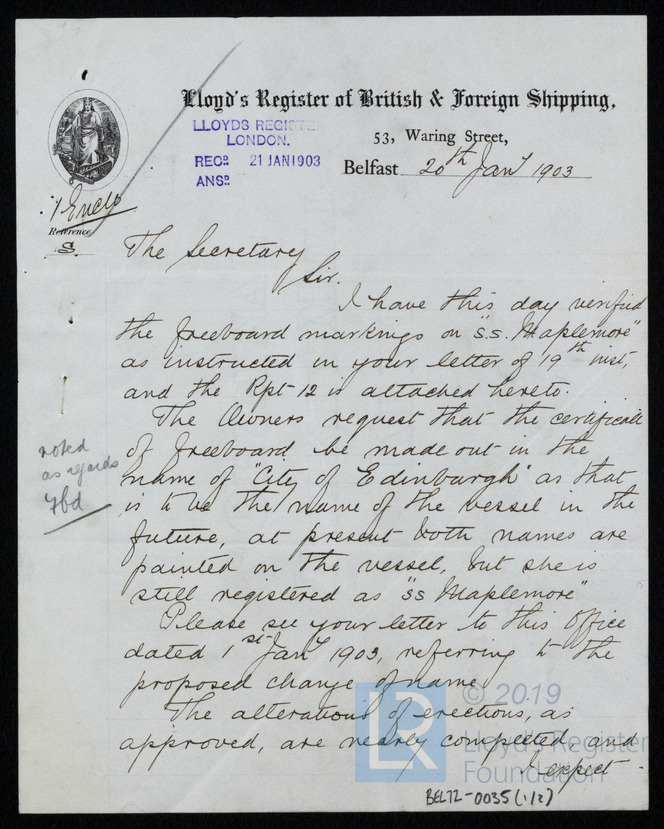 Lloyd's Register of British & Foreign Shipping,
LLOYDS REGISTER
LONDON.
RECD. 21 JAN 1903
ANSD.
53, Waring Street,
Belfast 20th Jany 1903
1 Enclo
Reference
S.
The Secretary
Sir.
I have this day verified
the freeboard markings on "S.S. Maplemore"
as instructed in your letter of 19th inst,
and the Rpt 12 is attached hereto.
The Owners request that the certificate
of freeboard be made out in the
name of "City of Edinburgh" as that
is to be the name of the vessel in the
future, at present both names are
painted on the vessel, but she is
still registered as "SS Maplemore"
Please see your letter to this Office
dated 1st Jany 1903, referring to the
proposed change of name.
The alterations of erections, as
approved, are nearly completed and
I expect
noted
as regards
Fbd
LR
© 2019
Lloyd's Register
Foundation
BEL72-0035(1/2)